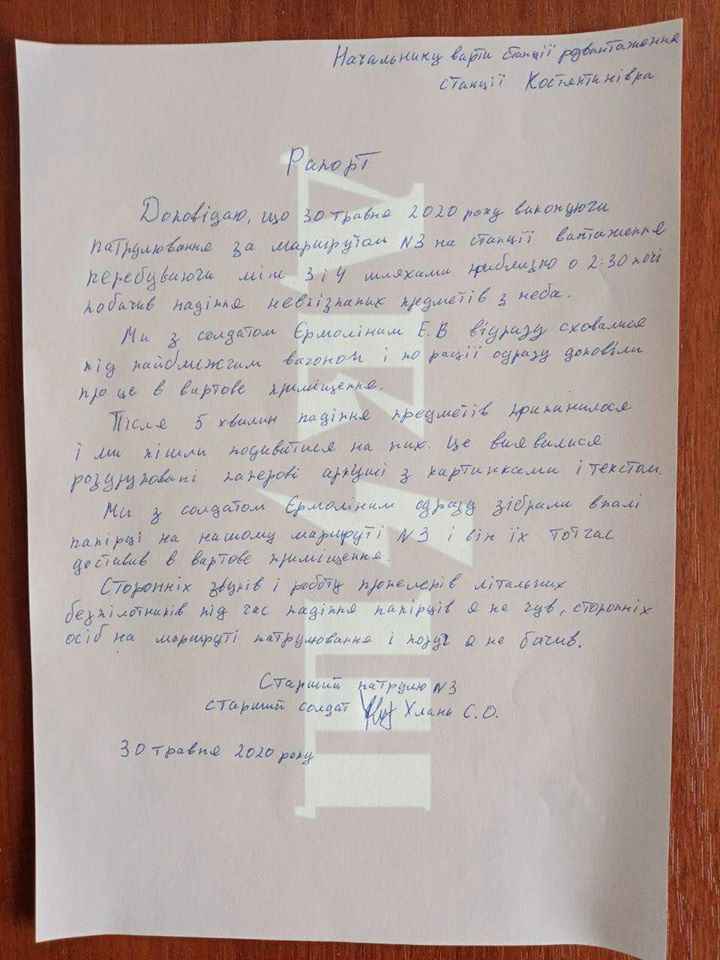 Начальнику варти станції розвантаження
станції Костянтинівка
Рапорт
Доповідаю, що 30 травня 2020 року виконуючи
патрулювання за маршрутом №3 на станції вантаження
перебуваючи між 3 і 4 шляхами приблизно о 2-30 ночі
побачив падіння невпізнаних предметів з неба.
Ми з солдатом Єрмоліним Е.В відразу сховалися
під найближчим вагоном і по рації одразу доповіли
про це в вартове приміщення.
Після 5 хвилин падіння предметів припинилося
і ми пішли подивитися на них. Це виявилися
роздруковані паперові аркуші з картинками і текстом
Ми з солдатом Єрмоліним одразу зібрали впалі
папірці на нашому маршруті №3 і він їх тотчас
доставив в вартове приміщення
Сторонніх звуків і роботу пропелерів літальних
безпілотників під час падіння папірців я не чув, сторонніх
осіб на маршруті патрулювання і поруч я не бачив.
Старший патрулю №3
старший солдат Хлань С.О.
30 травня 2020 року